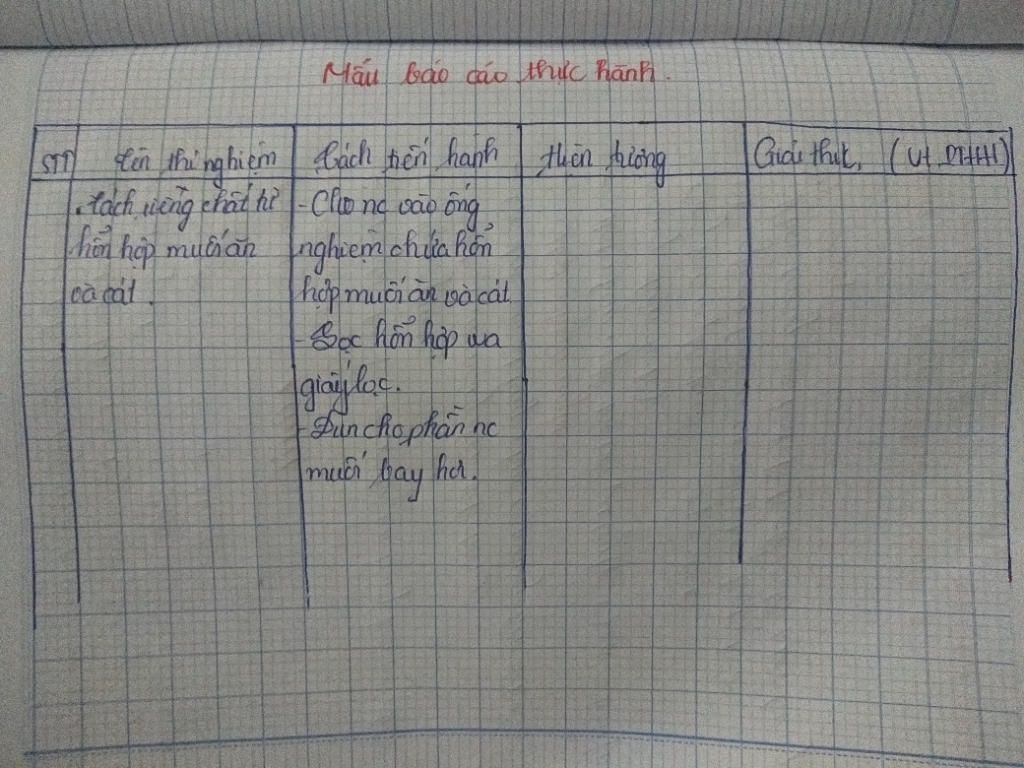 Mẫu báo cáo thực hành.
STT tên thí nghiệm Cách tiến hành Hiện tượng Giải thích, (Vt PTHH)
. Tách riêng chất từ - Cho nc vào ống
hỗn hợp muối ăn nghiệm chứa hỗn
và cát. hợp muối ăn và cát
- Lọc hỗn hợp qua
giấy lọc.
- Đun cho phần nc
muối bay hơi.